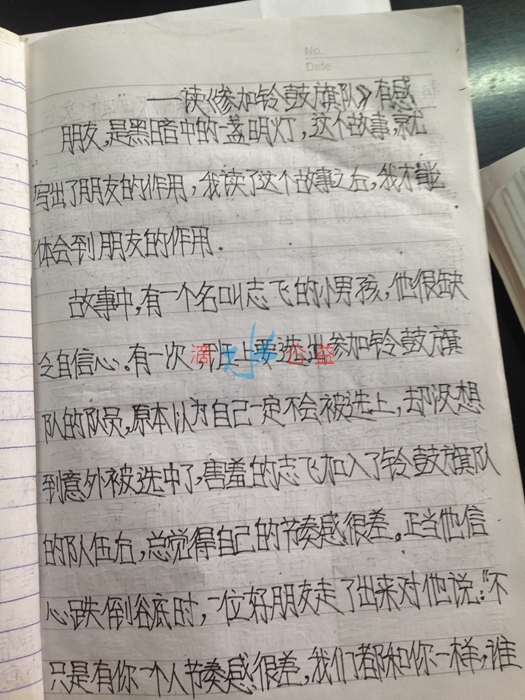 No.
Date
读《参加铃鼓旗队》有感
朋友,是黑暗中的一盏明灯,这个故事就
写出了朋友的作用,我读了这个故事之后,我才能
体会到朋友的作用.
故事中,有一个名叫志飞的小男孩,他很缺
乏自信心。有一次,班上要选出参加铃鼓旗
队的队员,原本以为自己一定不会被选上,却没想
到意外被选中了,害羞的志飞加入了铃鼓旗队
的队伍后,总觉得自己的节奏感很差。正当他信
心跌倒谷底时,一位好朋友走了出来对他说:“不
只是有你一个人节奏感很差,我们都和你一样,谁
滴水公益